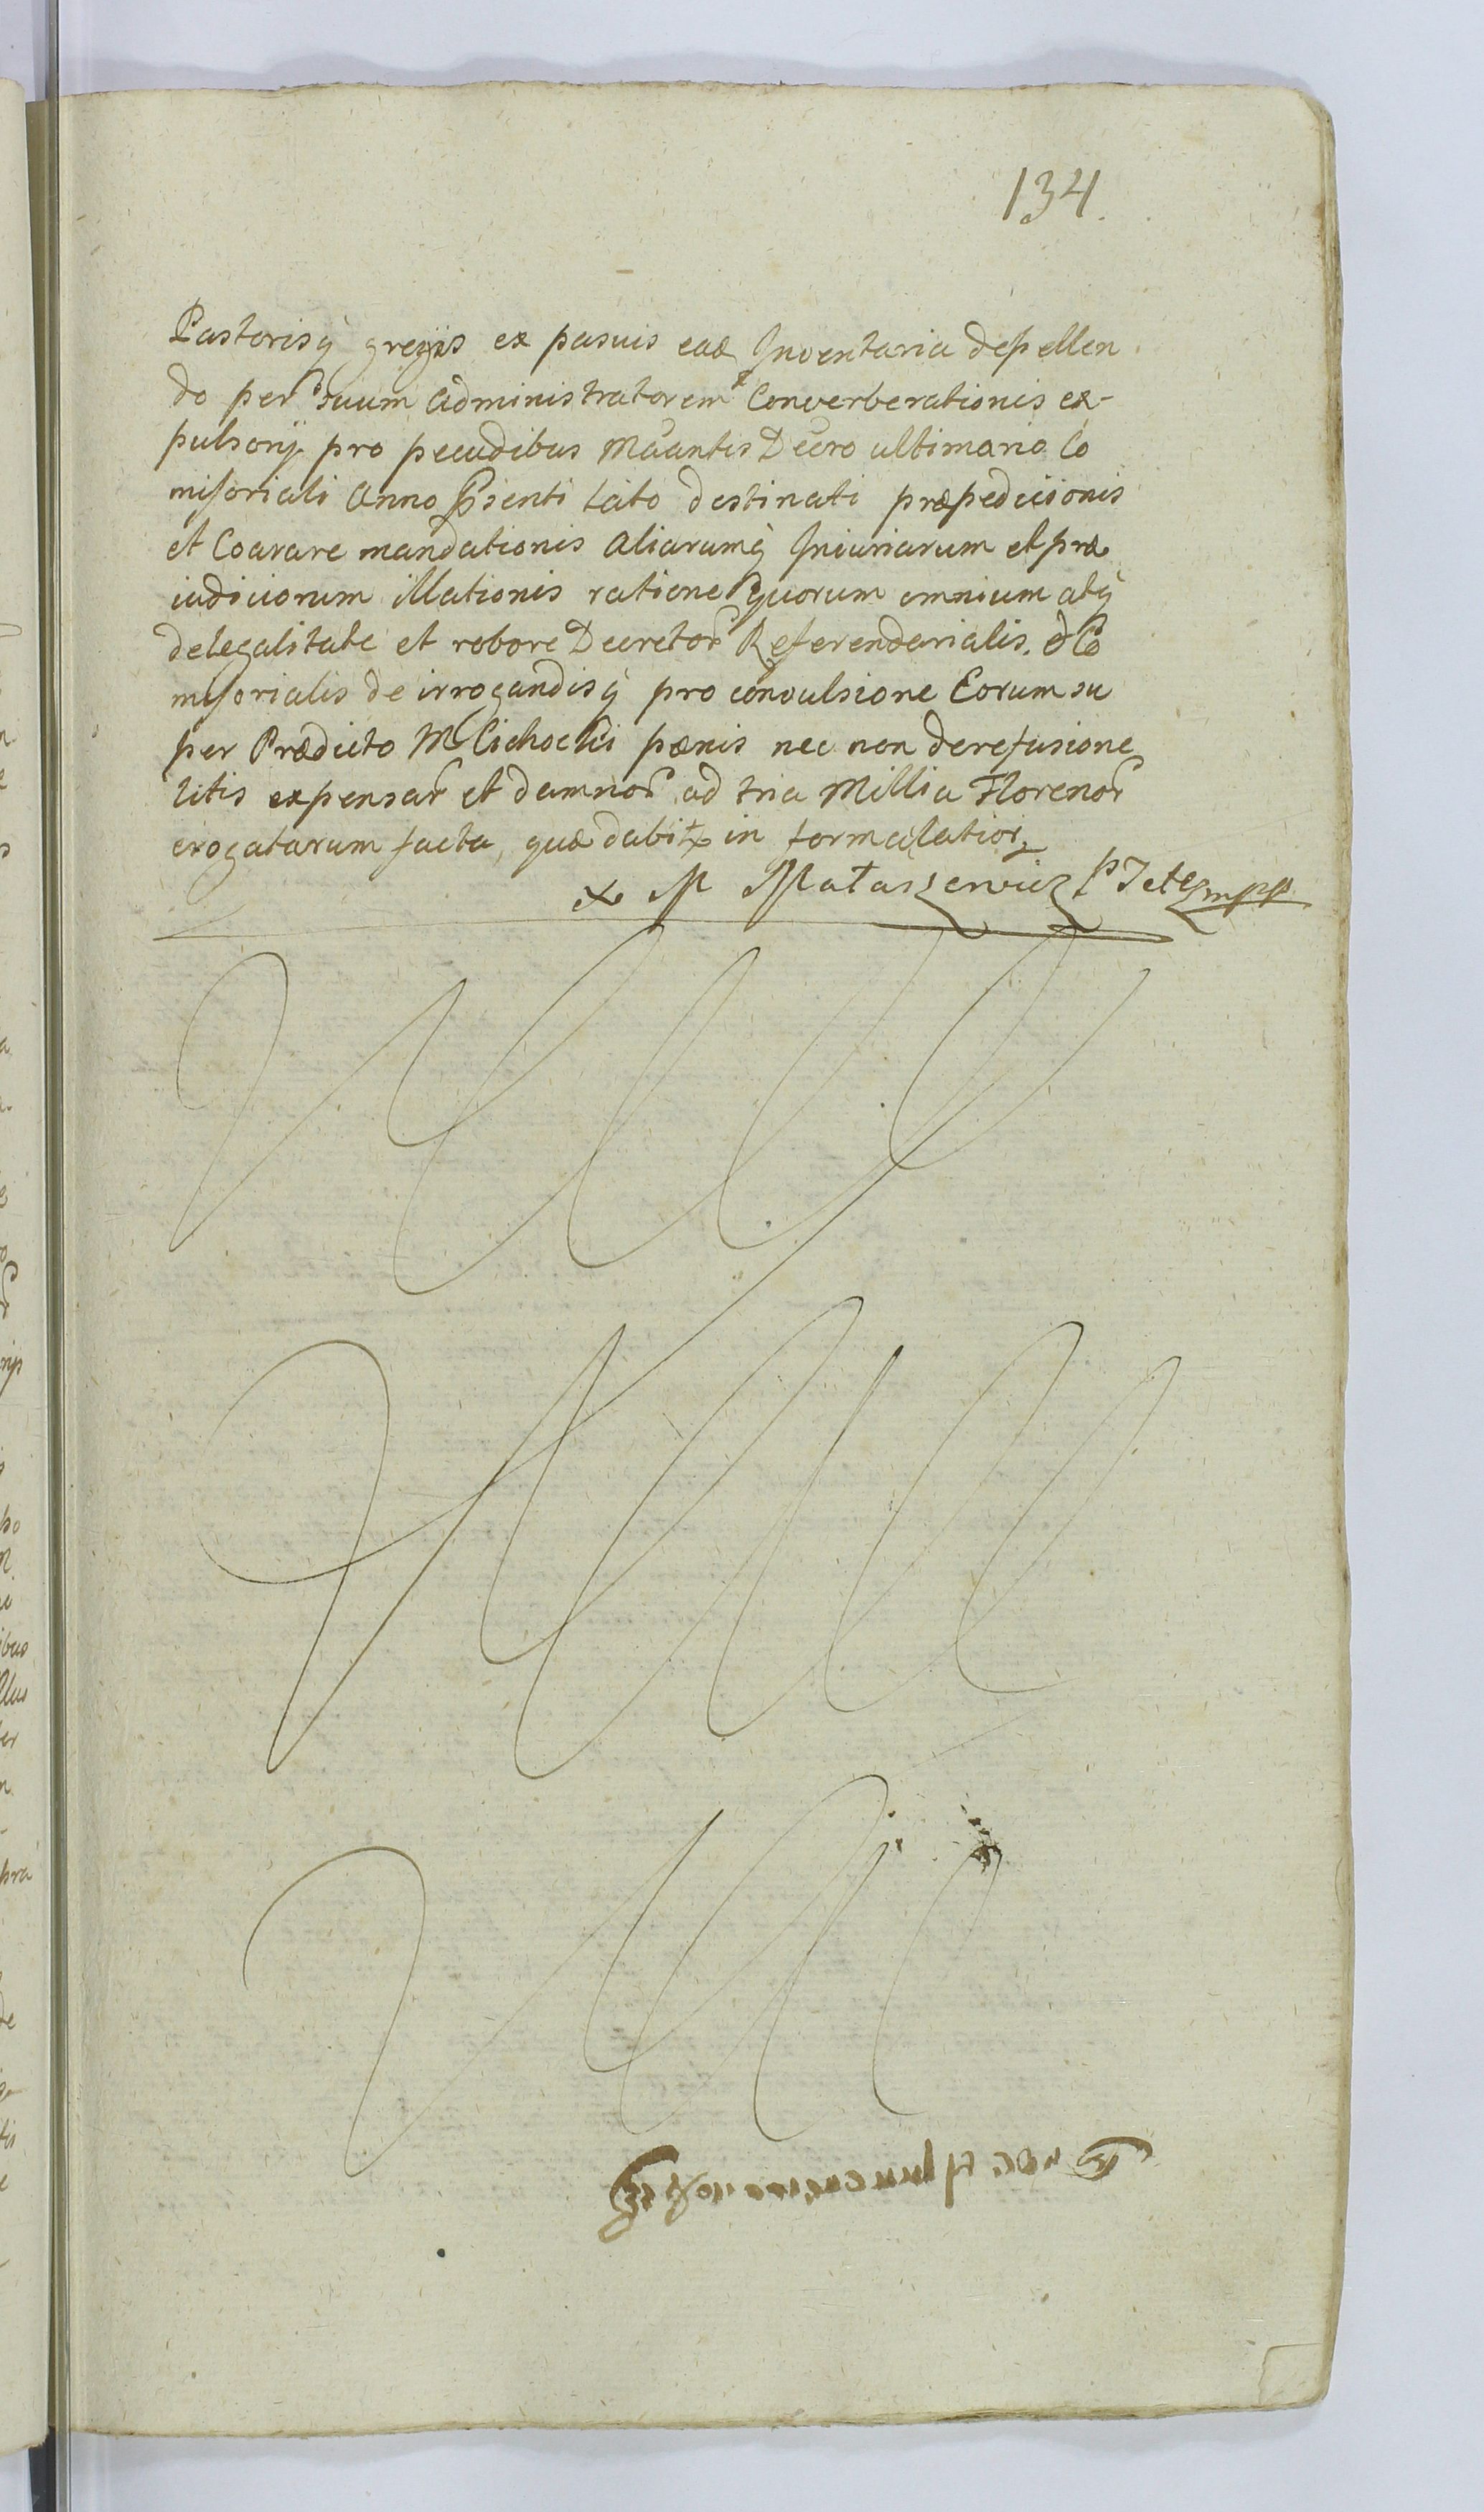 134.
Pastorisq gregis ex pasuis eaq Inventaria depellen
do per suum Administratorem Converberationis ex-
pulsorÿ pro pecudibus Mcantis Decro ultimario Co
misoriali Anno Psenti Lato destinati præpedicionis
et Coarare mandationis Aliarumq Iniuriarum et præ
iudiciorum illationis ratione Quorum omnium atq
delegalitate et robore Decretor Referendarialis. & Co
misorialis de irrogandisq pro convulsione Eorum su
per Prædicto M Cichocki pænis nec non de refusione
litis expensar et damnor ad tria Millia Florenor
erogatarum facta, quæ dabitr in forma latiori